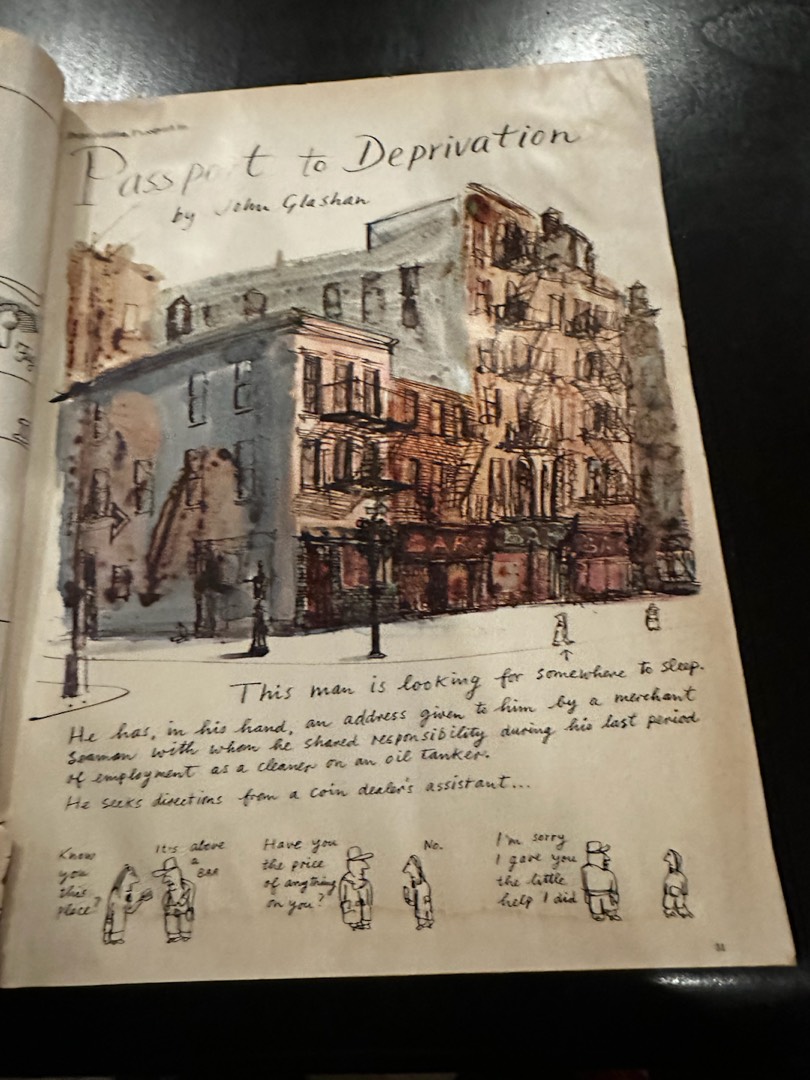 Passport to Deprivation
by John Glashan
BAR
BAR
This man is looking for somewhere to sleep.
He has, in his hand, an address given to him by a merchant
seaman with whom he shared responsibility during his last period
of employment as a cleaner on an oil tanker.
He seeks directions from a coin dealer's assistant...
Know
you
this
place?
It's above
a
BAR
Have you
the price
of anything
on you?
No.
I'm sorry
I gave you
the little
help I did